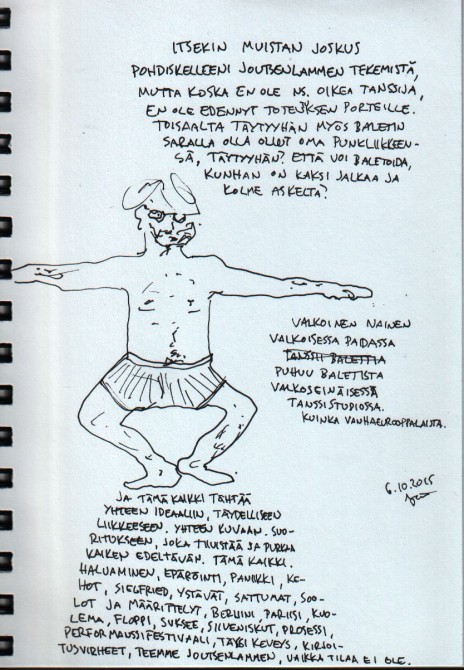 ITSEKIN MUISTAN JOSKUS
POHDISKELLEENI JOUTSENLAMMEN TEKEMISTÄ,
MUTTA KOSKA EN OLE NS. OIKEA TANSSIJA,
EN OLE EDENNYT TOTEUKSEN PORTEILLE.
TOISAALTA TÄYTYYHÄN MYÖS BALETIN
SARALLA OLLA OLLUT OMA PUNKLIIKKEEN-
SÄ, TÄYTYYHÄN? ETTÄ VOI BALETOIDA,
KUNHAN ON KAKSI JALKAA JA
KOLME ASKELTA?
VALKOINEN NAINEN
VALKOISESSA PAIDASSA
TANSSII BALETTIA
PUHUU BALETISTA
VALKOSEINÄISESSÄ
TANSSISTUDIOSSA.
KUINKA VANHAEUROOPPALAISTA.
6.10.2015
JA TÄMÄ KAIKKI TÄHTÄÄ
YHTEEN IDEAALIIN, TÄYDELLISEEN
LIIKKEESEEN. YHTEEN KUVAAN. SUO-
RITUKSEEN, JOKA TIIVISTÄÄ JA PURKAA
KAIKEN EDELTÄVÄN. TÄMÄ KAIKKI.
HALUAMINEN, EPÄRÖINTI, PANIIKKI, KE-
HOT, SIEGFRIED, YSTÄVÄT, SATTUMAT, SOO-
LOT JA MÄÄRITTELYT, BERLIINI PARIISI, KUO-
LEMA, FLOPPI, SUKSEE, SILVENISKUT, PROSESSI,
PERFORMANSSIFESTIVAALI, TÄYSI KEVEYS, KIRJOI-
TUSVIRHEET, TEEMME JOUTSENLAMMEN, VAIKKA TILAA EI OLE.